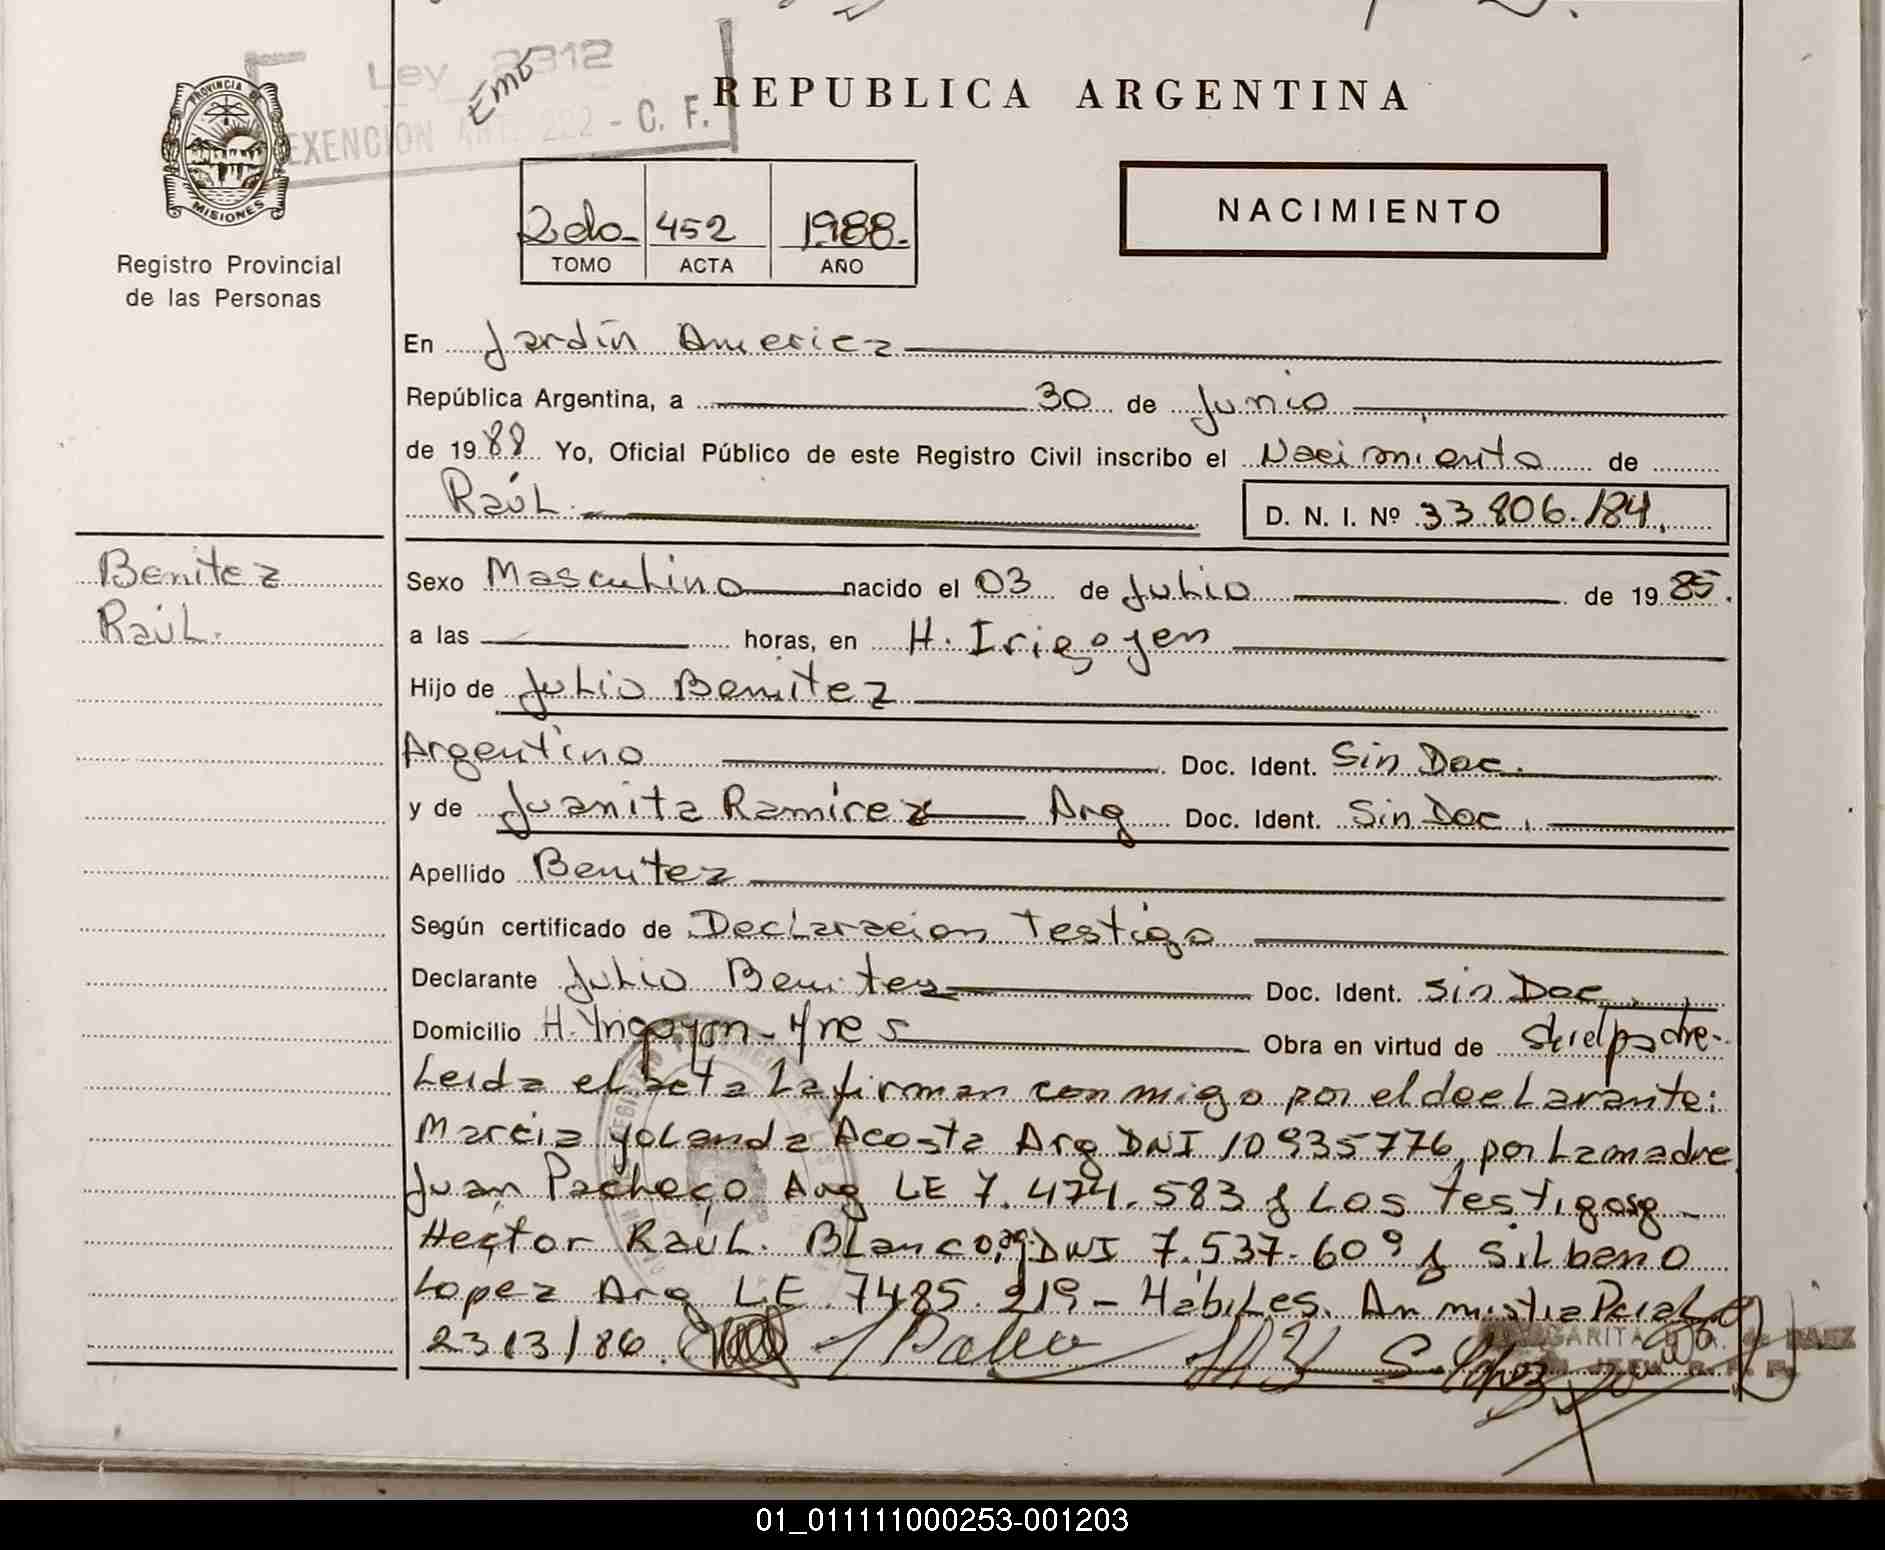 Ley 2312
Emb
EXENCION ART. 222 - C. F.
PROVINCIA DE
MISIONES
Registro Provincial
de las Personas
REPUBLICA ARGENTINA
2do- 452 1988.
TOMO ACTA AÑO
NACIMIENTO
En Jardín America
República Argentina, a 30 de Junio
de 1988 Yo, Oficial Público de este Registro Civil inscribo el Nacimiento de
Raúl. D. N. I. Nº 33.806.184.
Benitez
Raúl.
Sexo Masculino nacido el 03 de Julio de 1985.
a las horas, en H. Irigoyen
Hijo de Julio Benitez
Argentino Doc. Ident. Sin Doc.
y de Juanita Ramírez Arg Doc. Ident. Sin Doc.
Apellido Benitez
Según certificado de Declaracion Testigo
Declarante Julio Benitez Doc. Ident. Sin Doc.
Domicilio H. Yrigoyen - Mnes Obra en virtud de padre-
Leida el acta la firman conmigo por el declarante:
Marcia Yolanda Acosta Arg DNI 10935776, por la madre
Juan Pacheco Arg LE 7.474.583 y Los testigos
Hector Raúl. Blanco, arg DNI 7.537.609 y Silbeno
Lopez Arg L.E. 7485.219 - Hábiles. Anmistia
23/3/86.
S. López
MARGARITA de BAEZ
01_011111000253-001203